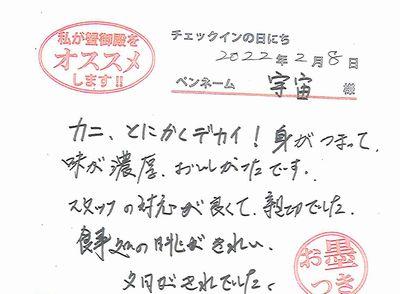 私が蟹御殿を
オススメ
します!!
チェックインの日にち
2022年2月8日
ペンネーム 宇宙 様
カニ、とにかくデカイ！身がつまって、
味が濃厚、おいしかったです。
スタッフの対応が良くて、親切でした。
食事処の
がきれい、
夕日がきれいでした。
お墨
つき